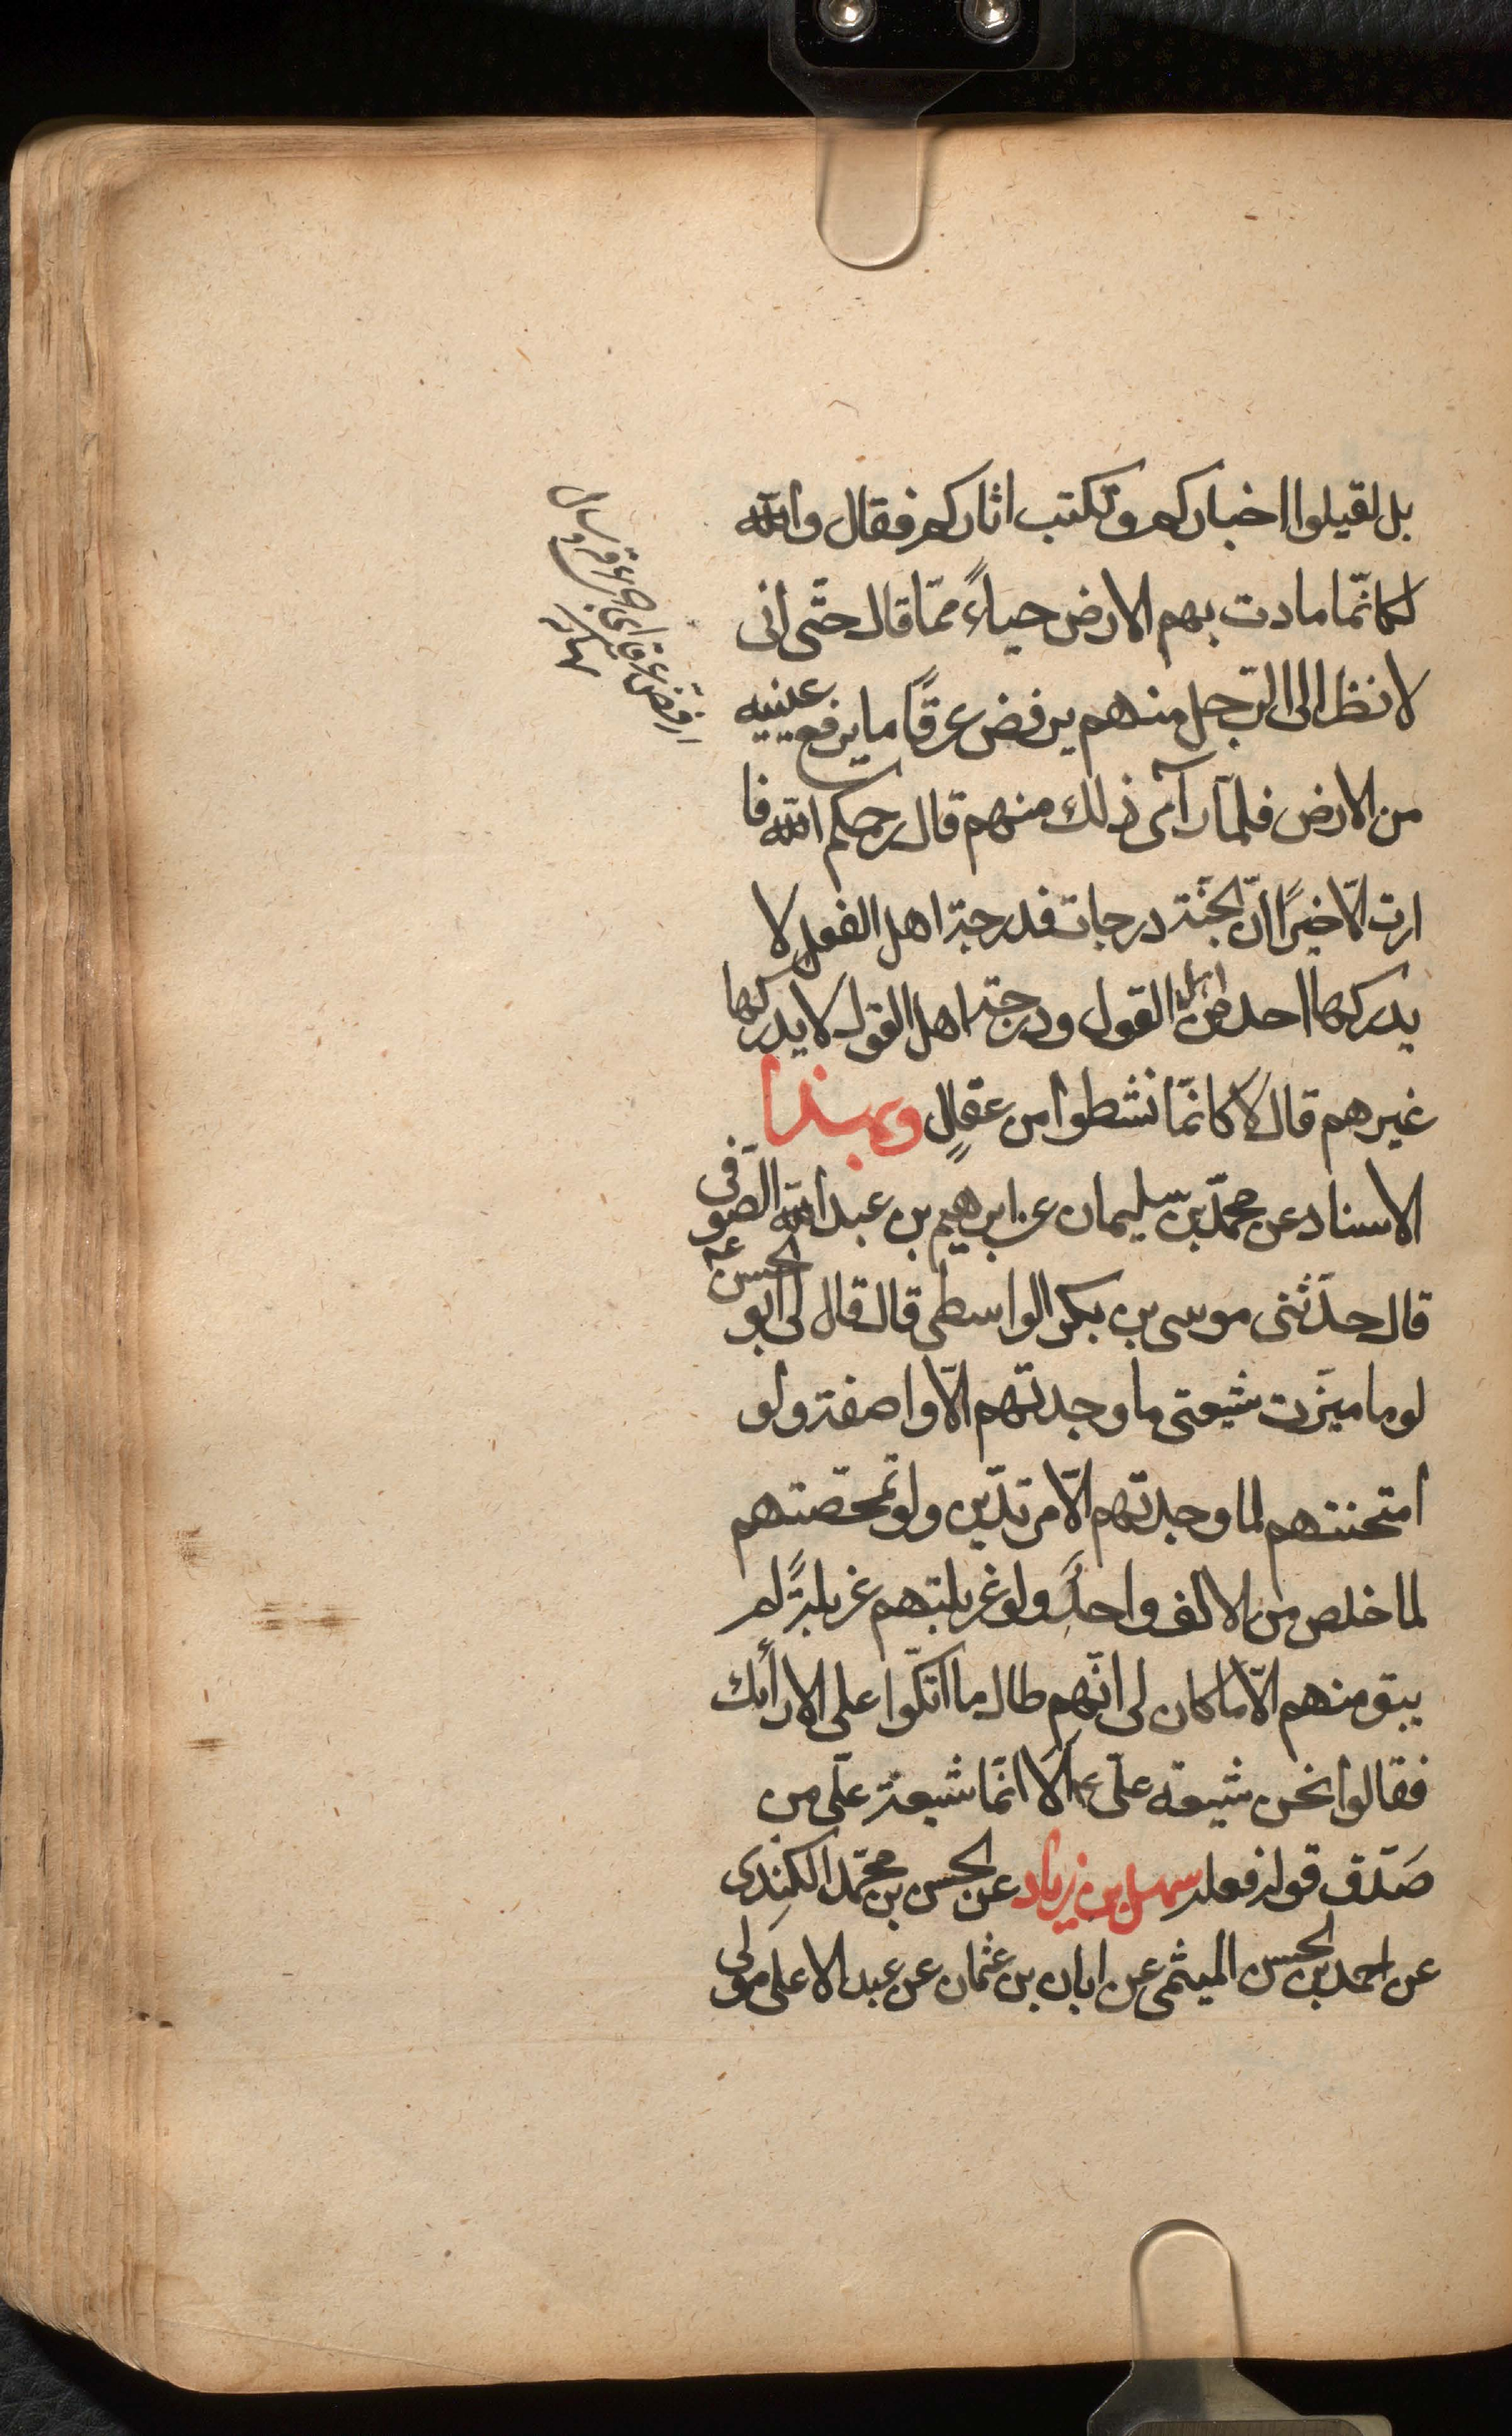 بل لقيلوا اخباركم وتكتب اثاركم فقال والله
لكانّما مادت بهم الارض حياءً ممّا قال حتّى انى
لانظر الى الرّجل منهم يرفض عرقًا ما يرفع عينيه
من الارض فلمّا رآى ذلك منهم قال رحمكم الله فما
اردت الّا خيرًا انّ الجنّة درجات فدرجة اهل الفعل لا
يدركها احد من اهل القول ودرجة اهل القول لا يدركها
غيرهم قال لا كانّما نشطوا من عقالٍ وبهذا
الاسناد عن محمّد بن سليمان عن ابرهيم بن عبد الله الصّوفى
قال حدّثنى موسى بن بكر الواسطى قال قال لى ابو الحسن ع
لو ما ميّزت شيعتى ما وجدتهم الّا واصفة ولو
امتحنتهم لما وجدتهم الّا مرتدّين ولو تمحّصتهم
لما خلص من الالف واحدٌ ولو غربلتهم غربلةً لم
يبق منهم الّا ما كان لى انّهم طال ما اتكّوا على الارائك
فقالوا نحن شيعة علىّ ع الا انّما شيعة علىّ من
صَدّق قوله فعله سهل بن زياد عن الحسن بن محمّد الكندى
عن احمد بن الحسن الميثمى عن ابان بن عثمان عن عبد الاعلى مولى
ارفض عرقا اى جرى عرقه وسال
نهاية